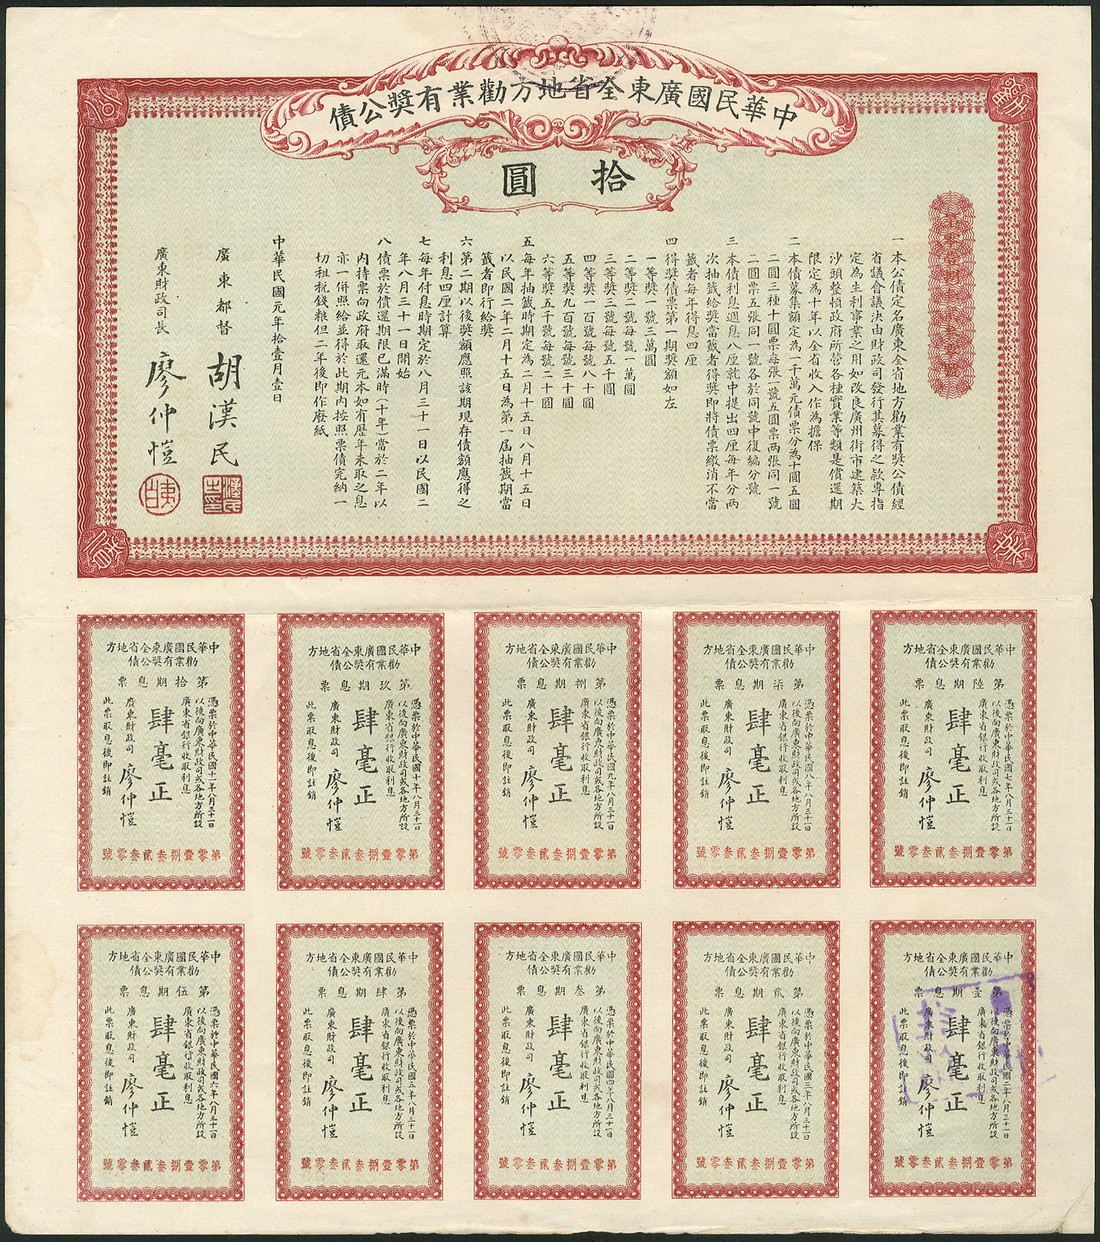 中華民國廣東全省地方勸業有獎公債
拾圓
一本公債定名廣東全省地方勸業有獎公債經
省議會議決由財政司發行其募得之款專指
定為生利事業之用如改良廣州街市建築大
沙頭整頓政府所營各種實業等類是償還期
限定為十年以全省收入作為擔保
二本債募集額定為一千萬元債票分為十圓五圓
二圓三種十圓票每張一號五圓票兩張同一號
二圓票五張同一號各於同號中復編分號
三本債利息週息八厘就中提出四厘每年分兩
次抽籤給獎當籤者得獎即將債票繳消不當
籤者每年得息四厘
四得獎債票第一期獎額如左
一等獎一號三萬圓
二等獎二號每號一萬圓
三等獎三號每號五千圓
四等獎一百號每號八十圓
五等獎九百號每號三十圓
六等獎五千號每號二十圓
五每年抽籤時期定為二月十五日八月十五日
以民國二年二月十五日為第一屆抽籤期當
籤者即行給獎
六第二期以後獎額應照該期現存債額應得之
利息四厘計算
七每年付息時期定於八月三十一日以民國二
年八月三十一日開始
八債票於償還期限已滿時(十年)當於二年以
內持票向政府取還元本如有歷年未取之息
亦一併照給並得於此期內按照票債完納一
切租稅錢糧但二年後即作廢紙
中華民國元年拾壹月壹日
廣東都督 胡漢民
廣東財政司長 廖仲愷
中華民國廣東全省地方
勸業有獎公債
第陸期息票
憑票於中華民國七年八月三十一日
以後向廣東財政司或各地方所設
廣東省銀行收取利息
肆毫正
廣東財政司 廖仲愷
此票取息後即註銷
第零壹捌叁貳叁零號
中華民國廣東全省地方
勸業有獎公債
第柒期息票
憑票於中華民國八年八月三十一日
以後向廣東財政司或各地方所設
廣東省銀行收取利息
肆毫正
廣東財政司 廖仲愷
此票取息後即註銷
第零壹捌叁貳叁零號
中華民國廣東全省地方
勸業有獎公債
第捌期息票
憑票於中華民國九年八月三十一日
以後向廣東財政司或各地方所設
廣東省銀行收取利息
肆毫正
廣東財政司 廖仲愷
此票取息後即註銷
第零壹捌叁貳叁零號
中華民國廣東全省地方
勸業有獎公債
第玖期息票
憑票於中華民國十年八月三十一日
以後向廣東財政司或各地方所設
廣東省銀行收取利息
肆毫正
廣東財政司 廖仲愷
此票取息後即註銷
第零壹捌叁貳叁零號
中華民國廣東全省地方
勸業有獎公債
第拾期息票
憑票於中華民國十一年八月三十一日
以後向廣東財政司或各地方所設
廣東省銀行收取利息
肆毫正
廣東財政司 廖仲愷
此票取息後即註銷
第零壹捌叁貳叁零號
中華民國廣東全省地方
勸業有獎公債
第壹期息票
憑票於中華民國二年八月三十一日
以後向廣東財政司或各地方所設
廣東省銀行收取利息
肆毫正
廣東財政司 廖仲愷
此票取息後即註銷
第零壹捌叁貳叁零號
中華民國廣東全省地方
勸業有獎公債
第貳期息票
憑票於中華民國三年八月三十一日
以後向廣東財政司或各地方所設
廣東省銀行收取利息
肆毫正
廣東財政司 廖仲愷
此票取息後即註銷
第零壹捌叁貳叁零號
中華民國廣東全省地方
勸業有獎公債
第叁期息票
憑票於中華民國四年八月三十一日
以後向廣東財政司或各地方所設
廣東省銀行收取利息
肆毫正
廣東財政司 廖仲愷
此票取息後即註銷
第零壹捌叁貳叁零號
中華民國廣東全省地方
勸業有獎公債
第肆期息票
憑票於中華民國五年八月三十一日
以後向廣東財政司或各地方所設
廣東省銀行收取利息
肆毫正
廣東財政司 廖仲愷
此票取息後即註銷
第零壹捌叁貳叁零號
中華民國廣東全省地方
勸業有獎公債
第伍期息票
憑票於中華民國六年八月三十一日
以後向廣東財政司或各地方所設
廣東省銀行收取利息
肆毫正
廣東財政司 廖仲愷
此票取息後即註銷
第零壹捌叁貳叁零號